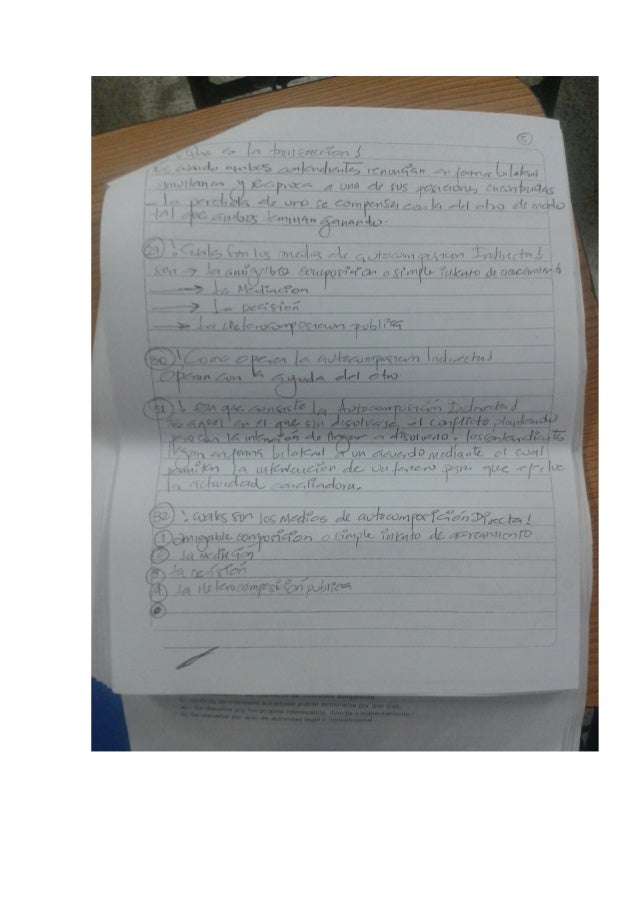 5
es la transacción!
es cuando ambos contendientes renuncian en forma bilateral
simultanea y reciproca a una de sus posiciones encontradas
La perdida de uno se compensa con la del otro de modo
tal que ambos terminan ganando.
29 ! Cuales son los medios de autocomposicion Indirecta!
son → La amigable composicion o simple intento de acercamiento
→ La Mediacion
→ La Decisión
→ La Heterocomposicion publica
30 ! Como opera la autocomposicion Indirecta!
Operan con la ayuda del otro.
31 ! en que consiste la Autocomposición Indirecta!
es aquel en el que sin disolverse el conflicto planteado
pero con la intención de llegar a disolverlo. los contendientes
llegan en forma bilateral a un acuerdo mediante el cual
permiten la intervención de un tercero para que efectue
la actividad conciliadora.
32 ! Cuales son los Medios de autocomposición Directa!
1 amigable composicion o simple intento de acercamiento
2 la mediación
3 la decisión
4 la Heterocomposición publica
El conflicto de intereses suscitados puede terminarse por dos vías,
a)- Se disuelve por los propios interesados, directa o indirectamente.
b) Se resuelve por acto de autoridad legal o